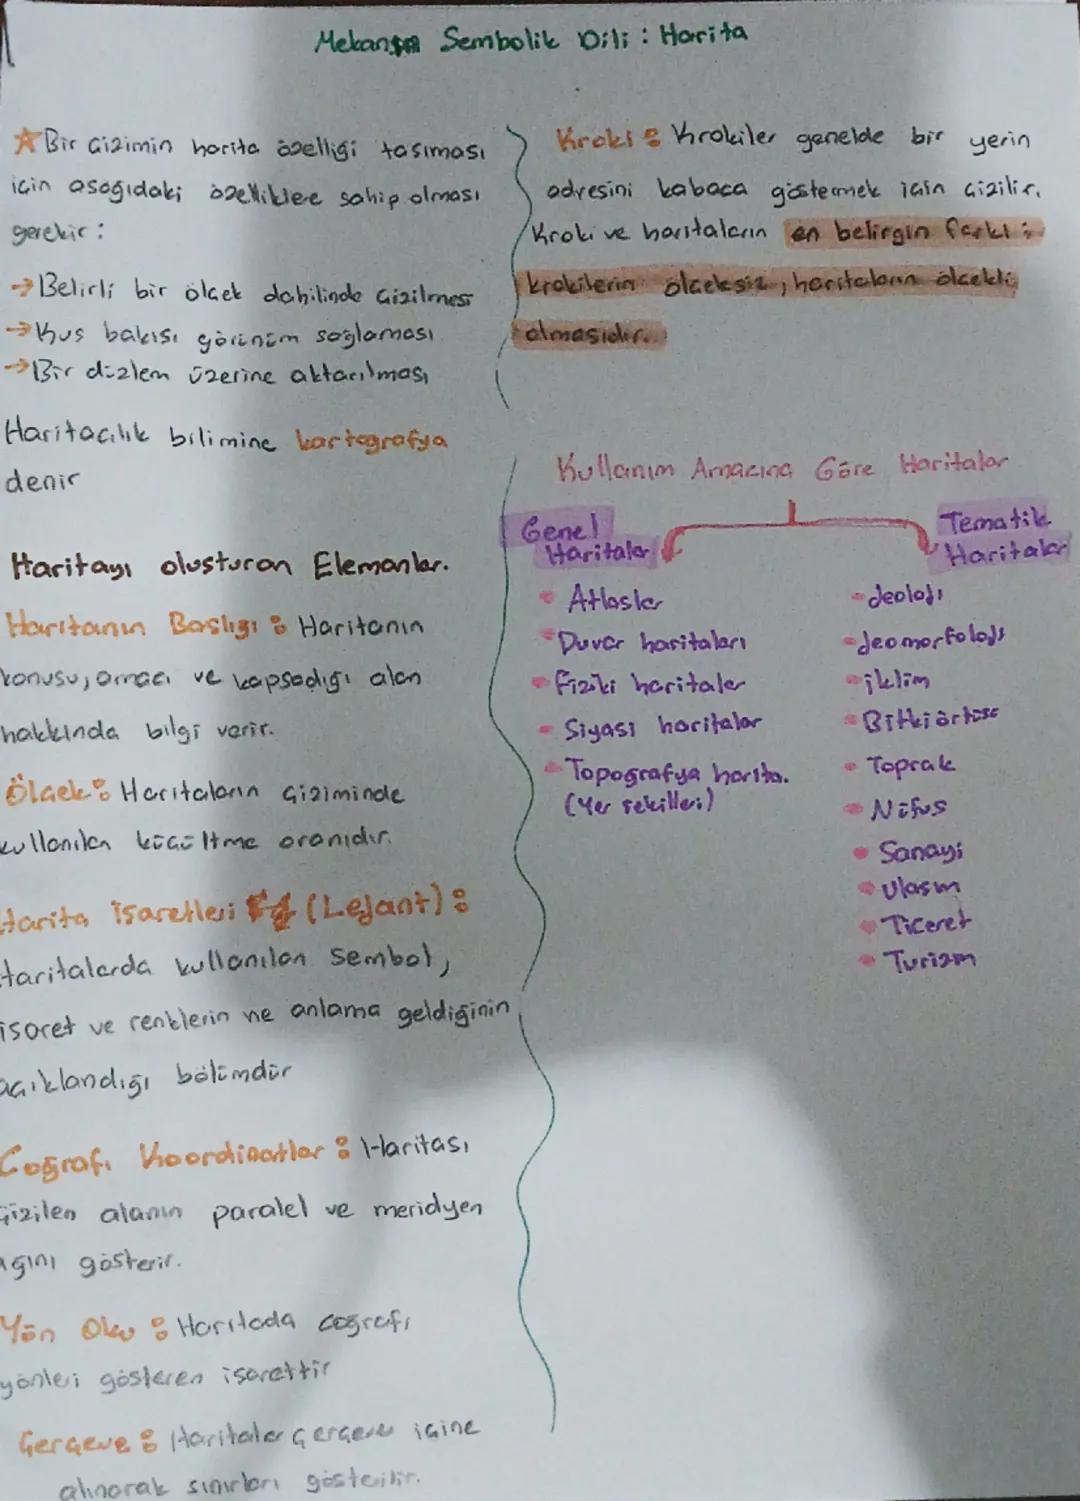 Mekanın Sembolik Dili : Harita
Bir Çizimin harita özelliği taşıması
için aşağıdaki özelliklere sahip olması
gerekir :
→ Belirli bir ölçek dahilinde Çizilmesi
→ Kuş bakışı görünüm sağlaması
→ Bir düzlem üzerine aktarılması
Haritacılık bilimine kartografya
denir
Haritayı oluşturan Elemanlar.
Haritanın Başlığı : Haritanın
konusu, amacı ve kapsadığı alan
hakkında bilgi verir.
Ölçek : Haritaların Çiziminde
kullanılan küçültme oranıdır.
Harita işaretleri (Lejant) :
Haritalarda kullanılan Sembol,
işaret ve renklerin ne anlama geldiğinin
açıklandığı bölümdür
Coğrafi Koordinatlar : Haritası
Çizilen alanın paralel ve meridyen
ağını gösterir.
Yön Oku : Haritada coğrafi
yönleri gösteren işarettir
Çerçeve : Haritalar Çerçeve içine
alınarak sınırları gösterilir.
Kroki : Krokiler genelde bir yerin
adresini kabaca göstermek için Çizilir.
Kroki ve haritaların en belirgin farkı ;
krokilerin ölçeksiz, haritaların ölçekli
olmasıdır.
Kullanım Amacına Göre Haritalar
Genel
Haritalar
Atlaslar
Duvar haritaları
Fiziki haritalar
Siyasi haritalar
Topografya harita.
(Yer şekilleri)
Tematik
Haritalar
Jeoloji
Jeomorfoloji
iklim
Bitki örtüsü
Toprak
Nüfus
Sanayi
Ulaşım
Ticaret
Turizm